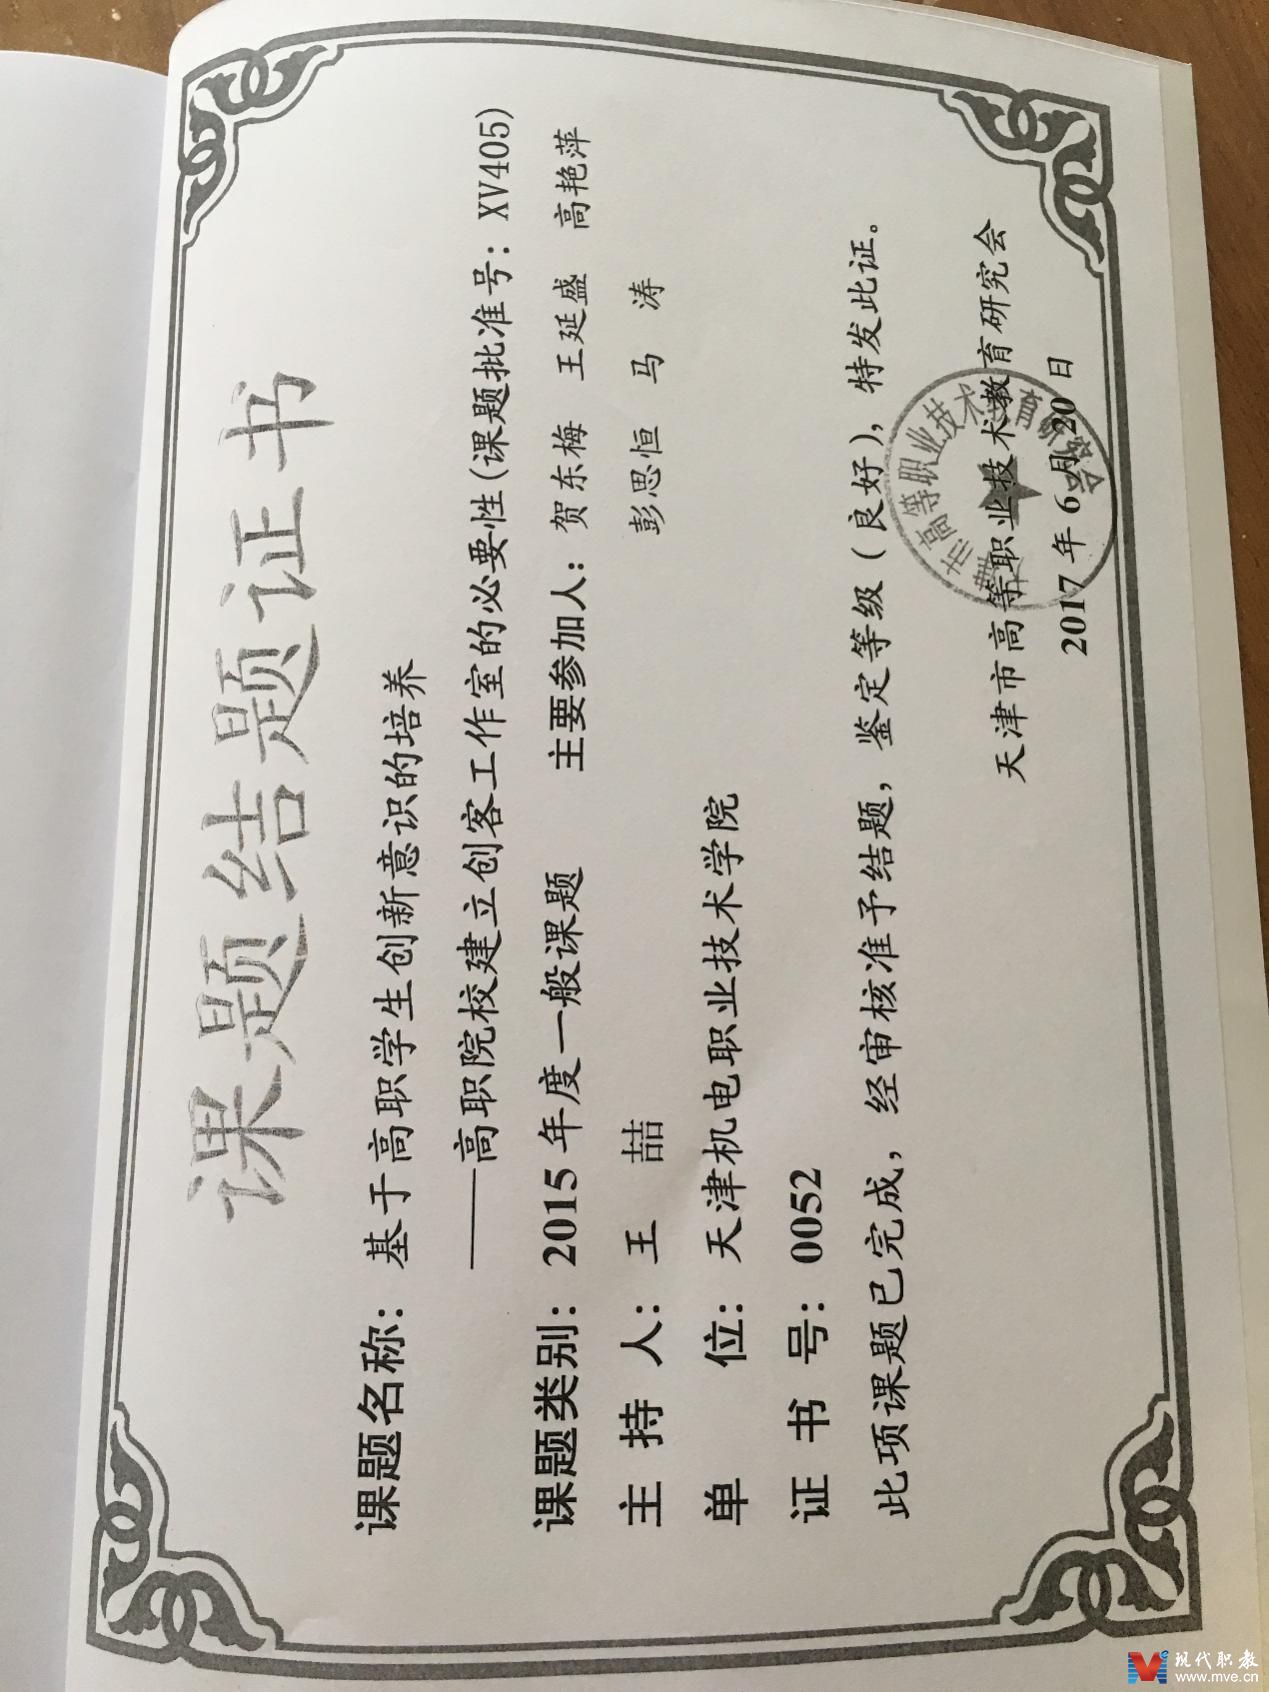 课题结题证书
课题名称：基于高职学生创新意识的培养
——高职院校建立创客工作室的必要性(课题批准号：XV405)
课题类别：2015年度一般课题 主要参加人：贺东梅 王延盛 高艳萍
主 持 人：王 喆 彭思恒 马 涛
单 位：天津机电职业技术学院
证 书 号：0052
此项课题已完成，经审核准予结题，鉴定等级（良好），特发此证。
天津市高等职业技术教育研究会
2017年6月20日
现代职教
www.mve.cn